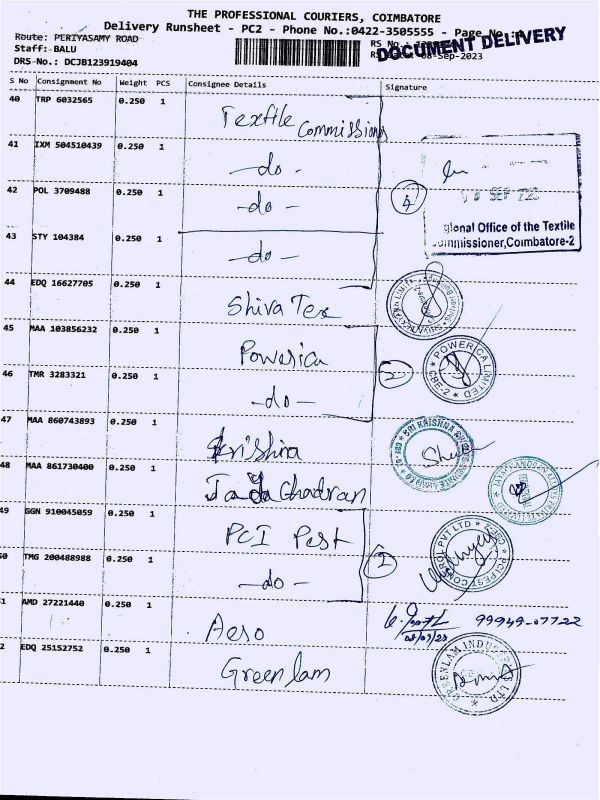 THE PROFESSIONAL COURIERS, COIMBATORE
Delivery Runsheet - PC2 - Phone No.:0422-3505555 - Page No.:
DOCUMENT DELIVERY
Route: PERIYASAMY ROAD
RS No.:
Staff: BALU
08-Sep-2023
DRS No.: DCJB123919404
S No Consignment No Weight PCS Consignee Details Signature
40 TRP 6032565 0.250 1 Textile Commissions
41 IXM 504510439 0.250 1 -do-
42 POL 3709488 0.250 1 -do-
4
SEP
gional Office of the Textile
ommissioner, Coimbatore-2
43 STY 104384 0.250 1 -do-
44 EDQ 16627705 0.250 1 Shiva Tex
45 MAA 103856232 0.250 1 Powerica
POWERICA LIMITED
CBE-2
46 TMR 3283321 0.250 1 -do-
2
47 MAA 860743893 0.250 1 Krishna
SRI KRISHNA
48 MAA 861730400 0.250 1 Chadran
49 GGN 910045059 0.250 1 PCI Pest
PCI PEST CONTROL PVT LTD
50 TMG 200488988 0.250 1 -do-
2
1 AMD 27221440 0.250 1 Aero
99949-07722
08/09/23
2 EDQ 25152752 0.250 1 Greenlam
GREENLAM INDUSTRIES LTD